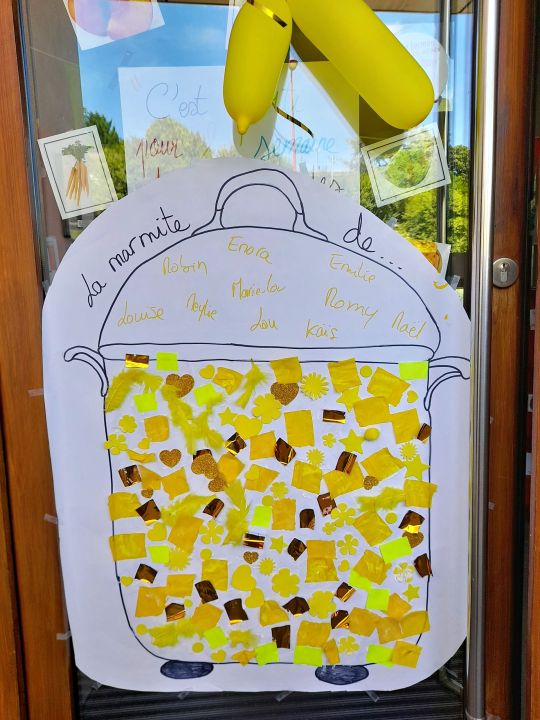 C'est
pour
semaine
La marmite de...
Robin Enora Emilie
Marielou
Louise Romy
Lou Kaïs Naël